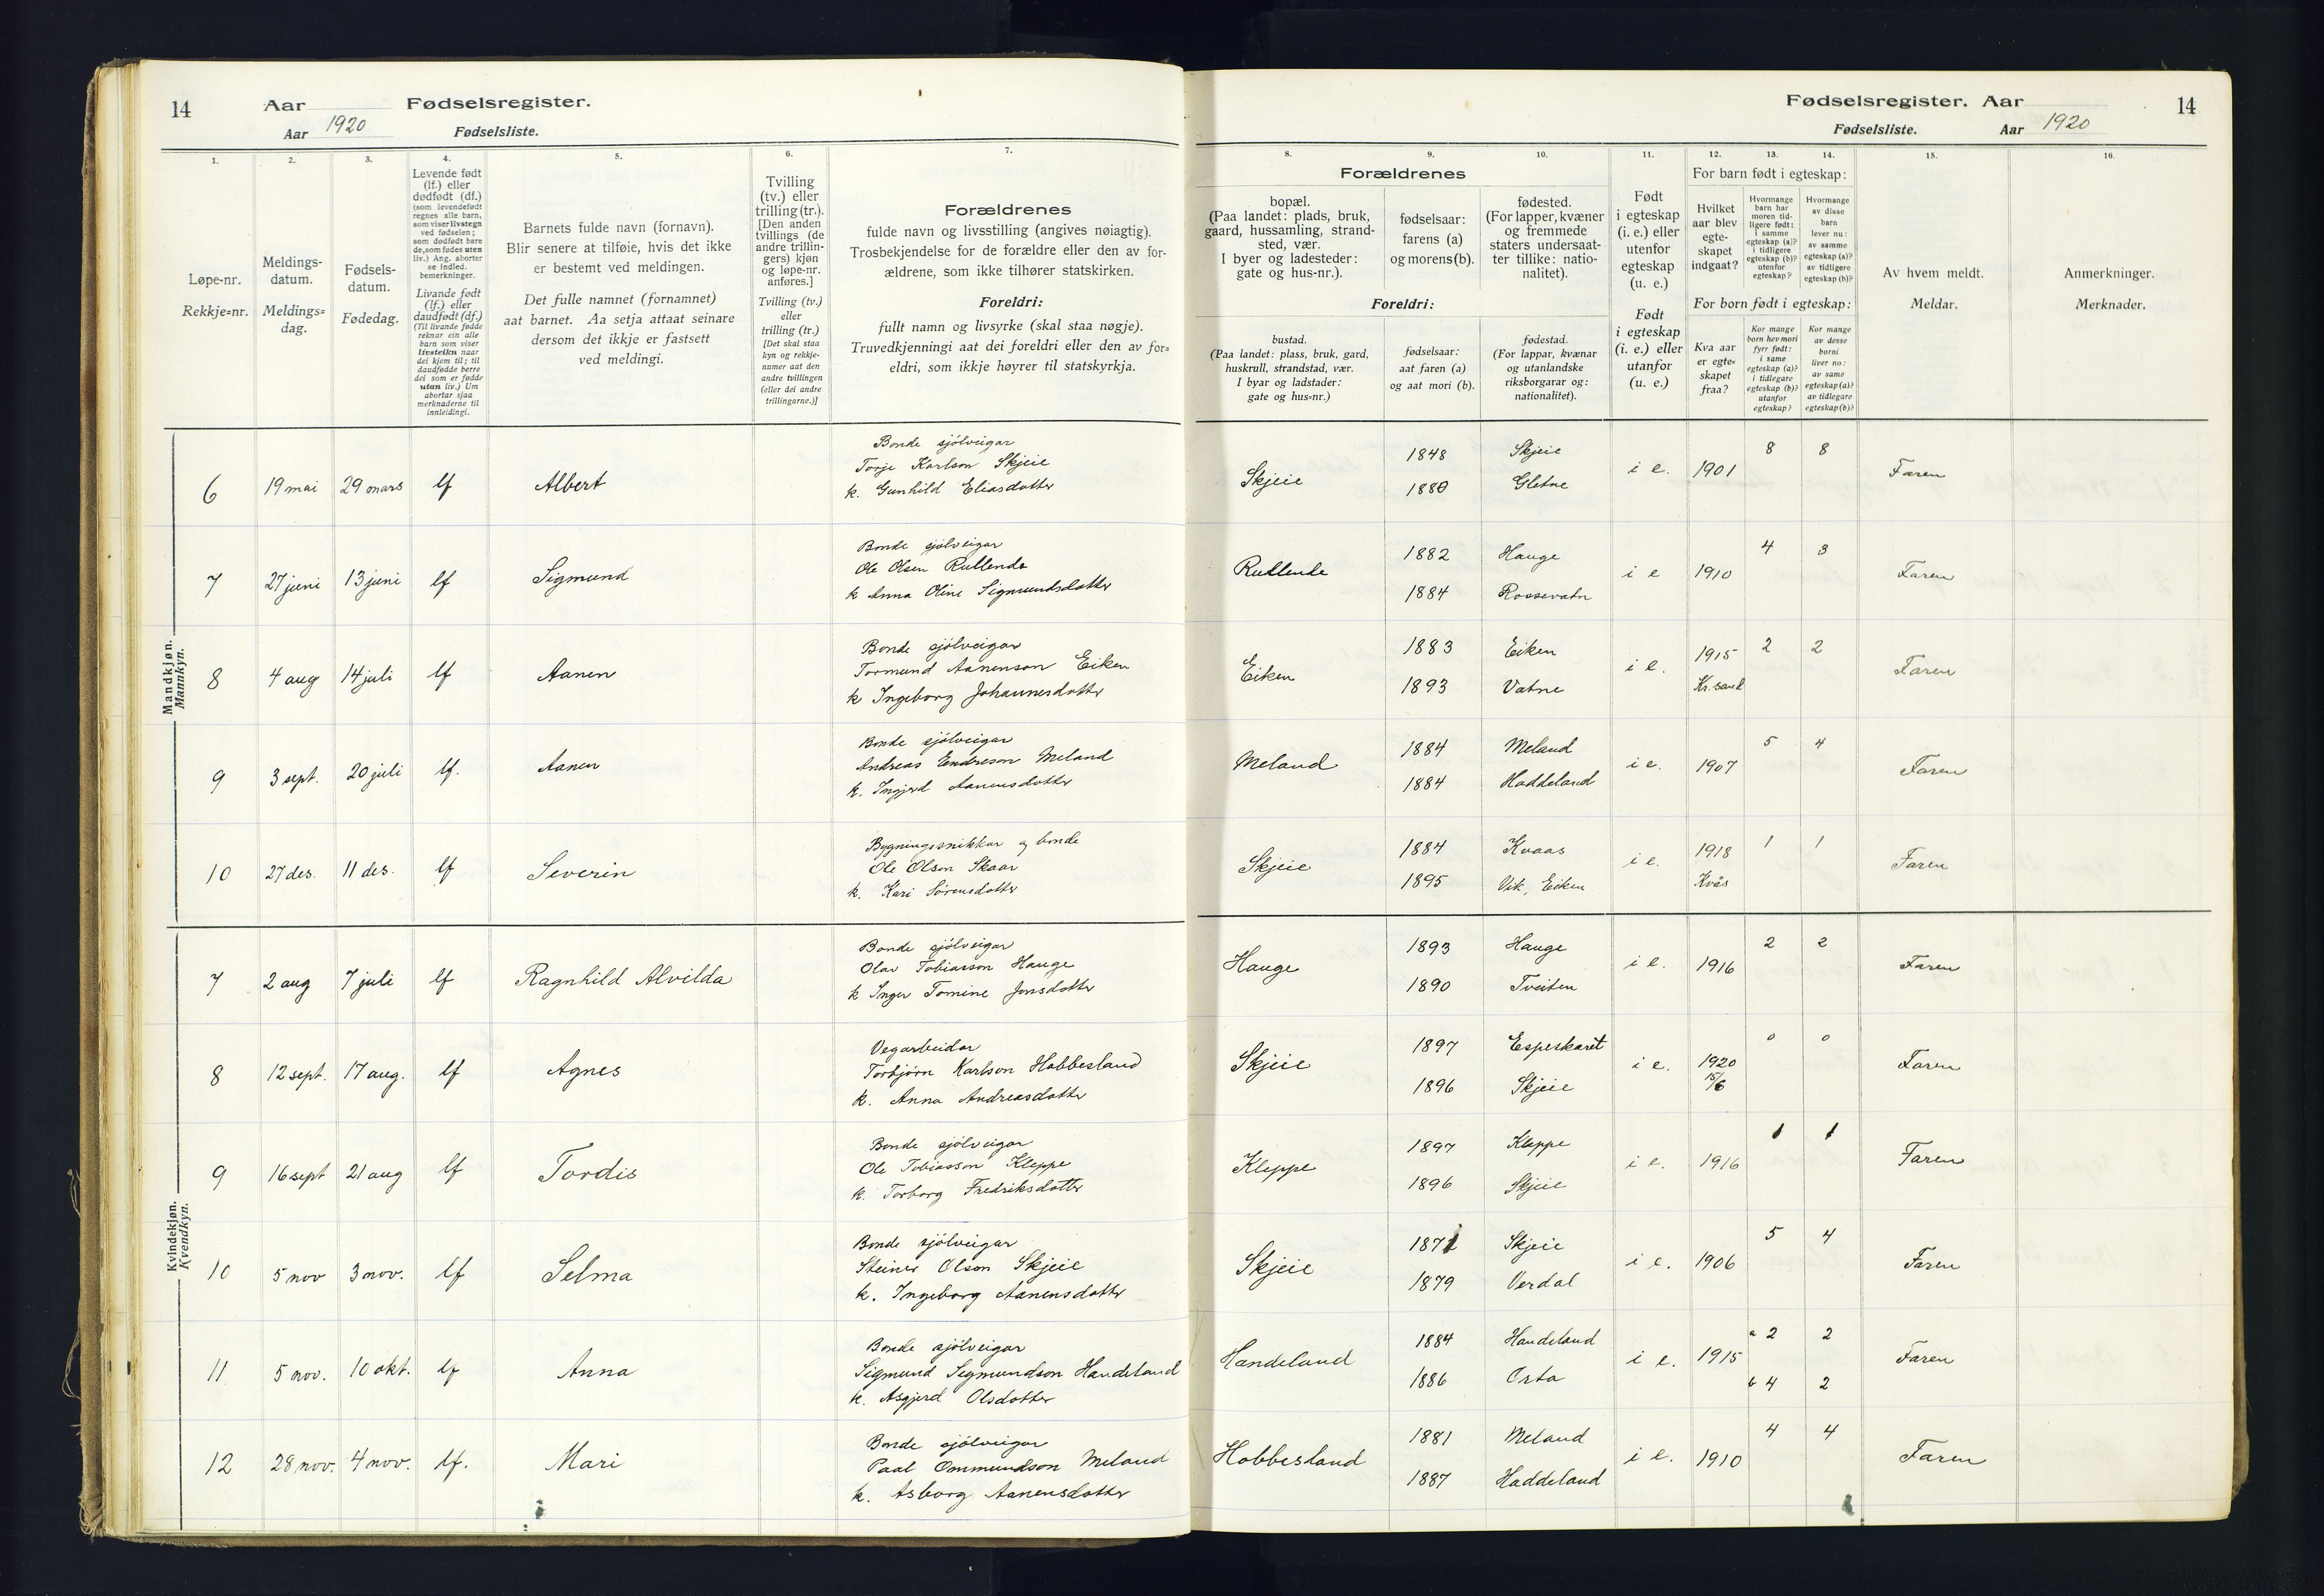 14
Aar
Fødselsregister.
Aar 1920
Fødselsliste.
1.
2.
3.
4.
5.
6.
7.
Løpe-nr.
Rekkje=nr.
Meldings-
datum.
Meldings=
dag.
Fødsels-
datum.
Fødedag.
Levende født
(lf.) eller
dødfødt (df.)
(som levendefødt
regnes alle barn,
som viser livstegn
ved fødselen;
som dødfødt bare
de, som fødes uten
liv.) Ang. aborter
se indled.
bemerkninger.
Livande født
(lf.) eller
daudfødt (df.)
(Til livande fødde
reknar ein alle
barn som viser
livsteikn naar
dei kjem til; til
daudfødde berre
dei som er fødde
utan liv.) Um
abortar sjaa
merknaderne til
innleidingi.
Barnets fulde navn (fornavn).
Blir senere at tilføie, hvis det ikke
er bestemt ved meldingen.
Det fulle namnet (fornamnet)
aat barnet. Aa setja attaat seinare
dersom det ikkje er fastsett
ved meldingi.
Tvilling
(tv.) eller
trilling (tr.).
[Den anden
tvillings (de
andre trillin-
gers) kjøn
og løpe-nr.
anføres.]
Tvilling (tv.)
eller
trilling (tr.)
[Det skal staa
kyn og rekkje-
numer aat den
andre tvillingen
(eller dei andre
trillingarne.)]
Forældrenes
fulde navn og livsstilling (angives nøiagtig).
Trosbekjendelse for de forældre eller den av for-
ældrene, som ikke tilhører statskirken.
Foreldri:
fullt namn og livsyrke (skal staa nøgje).
Truvedkjenningi aat dei foreldri eller den av for=
eldri, som ikkje høyrer til statskyrkja.
Mandkjøn.
Mannkyn.
6 19 mai 29 mars lf Albert
Bonde sjölveigar
Torje Karlson Skjeie
k. Gunhild Eliasdotter
7 27 juni 13 juni lf Sigmund
Bonde sjölveigar
Ole Olsen Rullende
k Anna Oline Sigmundsdotter
8 4 aug 14 juli lf Aanen
Bonde sjölveigar
Tormund Aanenson Eiken
k Ingeborg Johannesdotter
9 3 sept. 20 juli lf. Aanen
Bonde sjölveigar
Andreas Endreson Meland
k. Ingjerd Aanensdotter
10 27 des. 11 des. lf Severin
Bygningssnikkar og bonde
Ole Olson Skaar
k. Kari Sörensdotter
Kvindekjøn.
Kvendkyn.
7 2 aug 7 juli lf Ragnhild Alvilda
Bonde sjölveigar
Olav Tobiasson Hauge
k Inger Tomine Jonsdotter
8 12 sept. 17 aug. lf Agnes
Vegarbeidar
Torbjörn Karlson Hobbesland
k. Anna Andreasdotter
9 16 sept 21 aug lf Tordis
Bonde sjölveigar
Ole Tobiasson Kleppe
k. Torborg Fredriksdotter
10 5 nov 3 nov. lf Selma
Bonde sjölveigar
Steinar Olson Skjeie
k. Ingeborg Aanensdotter
11 5 nov. 10 okt. lf Anna
Bonde sjölveigar
Sigmund Sigmundson Handeland
k. Asgjerd Olsdotter
12 28 nov. 4 nov. lf. Mari
Bonde sjölveigar
Paal Ommundson Meland
k. Asborg Aanensdotter
Fødselsregister. Aar
14
Fødselsliste.
Aar 1920
8.
9.
10.
11.
12.
13.
14.
15.
16.
Forældrenes
bopæl.
(Paa landet: plads, bruk,
gaard, hussamling, strand-
sted, vær.
I byer og ladesteder:
gate og hus-nr.).
fødselsaar:
farens (a)
og morens (b).
fødested.
(For lapper, kvæner
og fremmede
staters undersaat-
ter tillike: natio-
nalitet).
Foreldri:
bustad.
(Paa landet: plass, bruk, gard,
huskrull, strandstad, vær.
I byar og ladstader:
gate og hus=nr.)
fødselsaar:
aat faren (a)
og aat mori (b).
fødestad.
(For lappar, kvænar
og utanlandske
riksborgarar og:
nationalitet).
Født
i egteskap
(i. e.) eller
utenfor
egteskap
(u. e.)
Født
i egteskap
(i. e.) eller
utanfor
(u. e.)
For barn født i egteskap:
Hvilket
aar blev
egte-
skapet
indgaat?
Hvormange
barn har
moren tid-
ligere født:
i samme
egteskap (a)?
i tidligere
egteskap (b)?
utenfor
egteskap?
Hvormange
av disse
barn
lever nu:
av samme
egteskap (a)?
av tidligere
egteskap (b)?
For born født i egteskap:
Kva aar
er egte=
skapet
fraa?
Kor mange
born hev mori
fyrr født:
i same
egteskap (a)?
i tidlegare
egteskap (b)?
utanfor
egteskap?
Kor mange
av desse
borni
liver no:
av same
egteskap (a)?
av tidlegare
egteskap (b)?
Av hvem meldt.
Meldar.
Anmerkninger.
Merknader.
Skjeie 1848 Skjeie i e. 1901 8 8 Faren
1880 Gletne
Rullende 1882 Hauge i e 1910 4 3 Faren
1884 Rossevatn
Eiken 1883 Eiken i e. 1915 2 2 Faren
1893 Vatne Kr.sand
Meland 1884 Meland i e. 1907 5 4 Faren
1884 Haddeland
Skjeie 1884 Kvaas i e. 1918 1 1 Faren
1895 Vik, Eiken Kvås
Hauge 1893 Hauge i e. 1916 2 2 Faren
1890 Tveiten
Skjeie 1897 Espeskaret i e. 1920 0 0 Faren
1896 Skjeie 15/6
Kleppe 1897 Kleppe i e. 1916 1 1 Faren
1896 Skjeie
Skjeie Skjeie i e. 1906 5 4 Faren
1879 Verdal
Handeland 1884 Handeland i e. 1915 a 2 2 Faren
1886 Orta b 4 2
Hobbesland 1881 Meland i e. 1910 4 4 Faren
1887 Haddeland